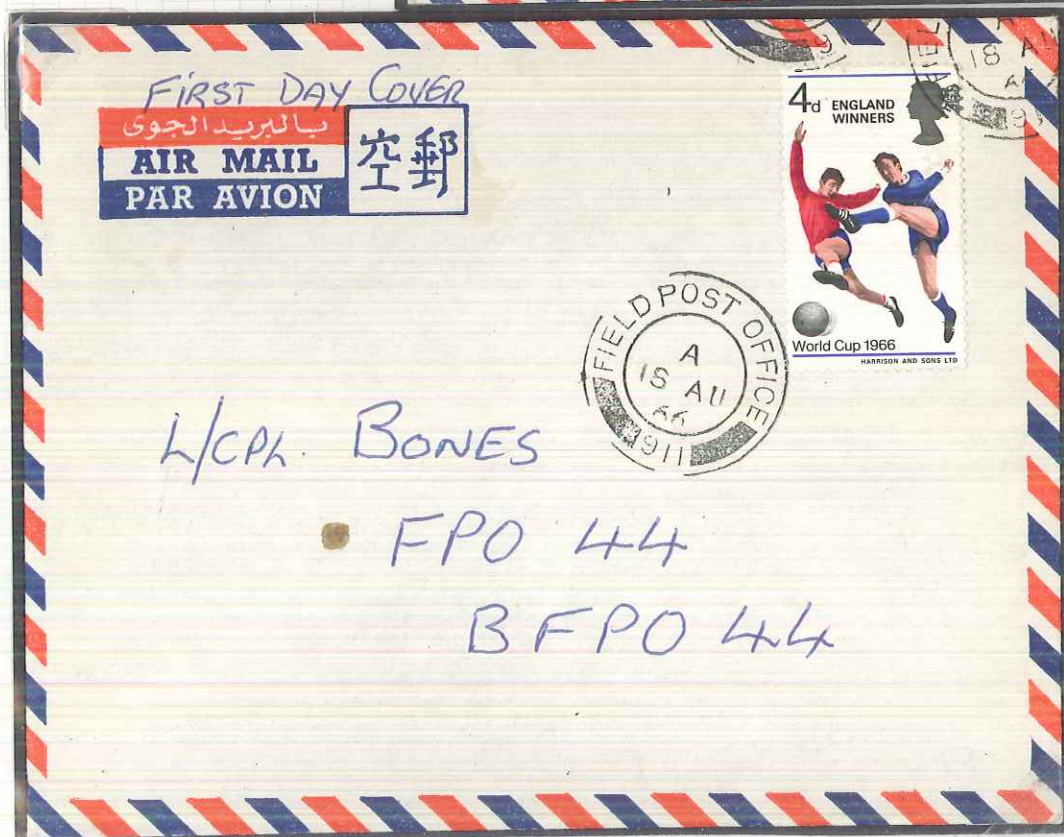 FIRST DAY COVER
بالبريد الجوى
AIR MAIL
PAR AVION
空郵
4d ENGLAND
WINNERS
World Cup 1966
HARRISON AND SONS LTD
18 AU
66
FIELD POST OFFICE
A
18 AU
66
911
L/CPL. BONES
FPO 44
BFPO 44